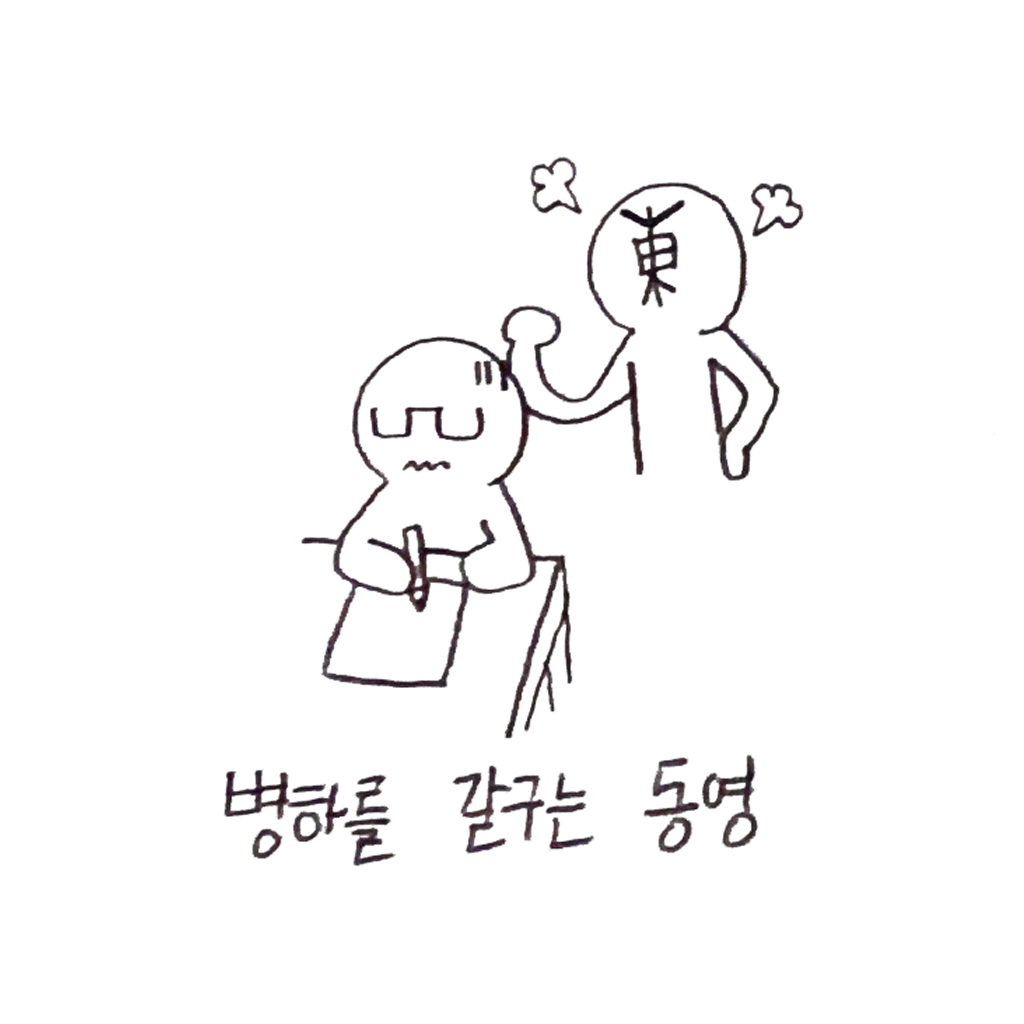 東
병하를 갈구는 동영